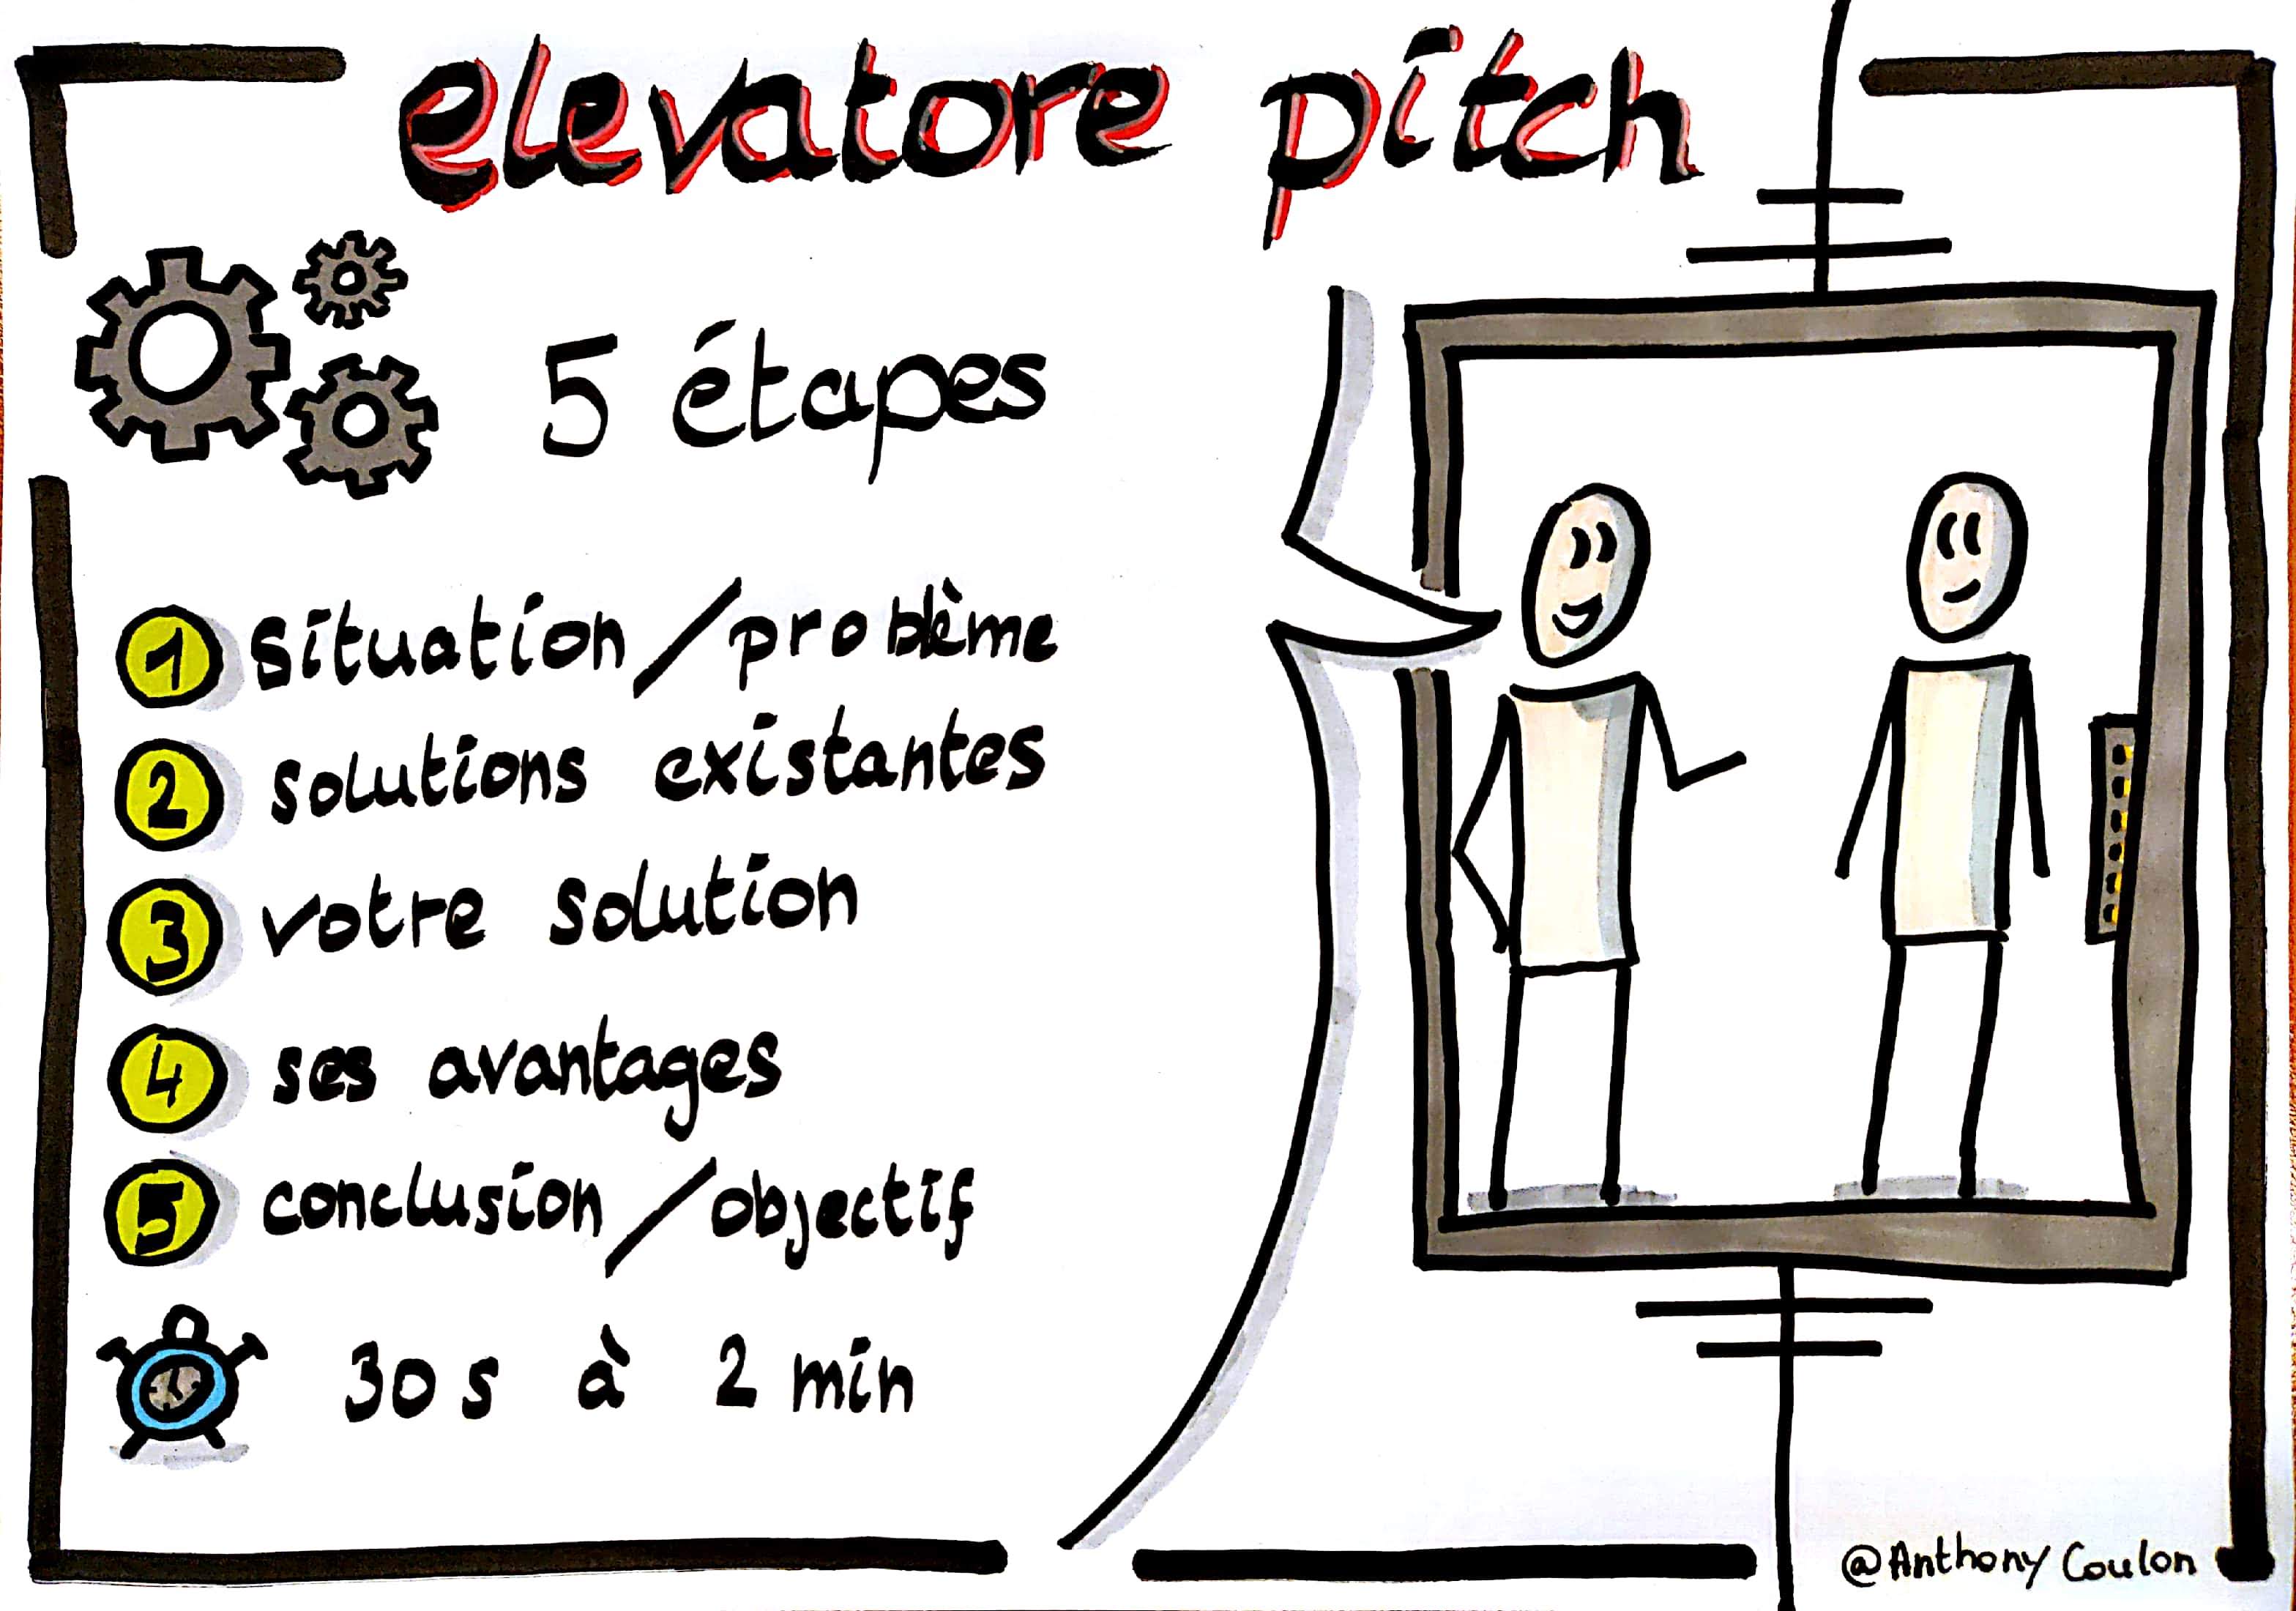 elevatore pitch
5 étapes
1 situation/problème
2 solutions existantes
3 votre solution
4 ses avantages
5 conclusion/objectif
30 s à 2 min
@Anthony Coulon